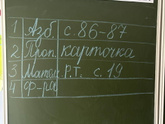 1 Азб. с. 86-87
2 Проп. карточка
3 Матем. Р.Т. с. 19
4 Ф-ра